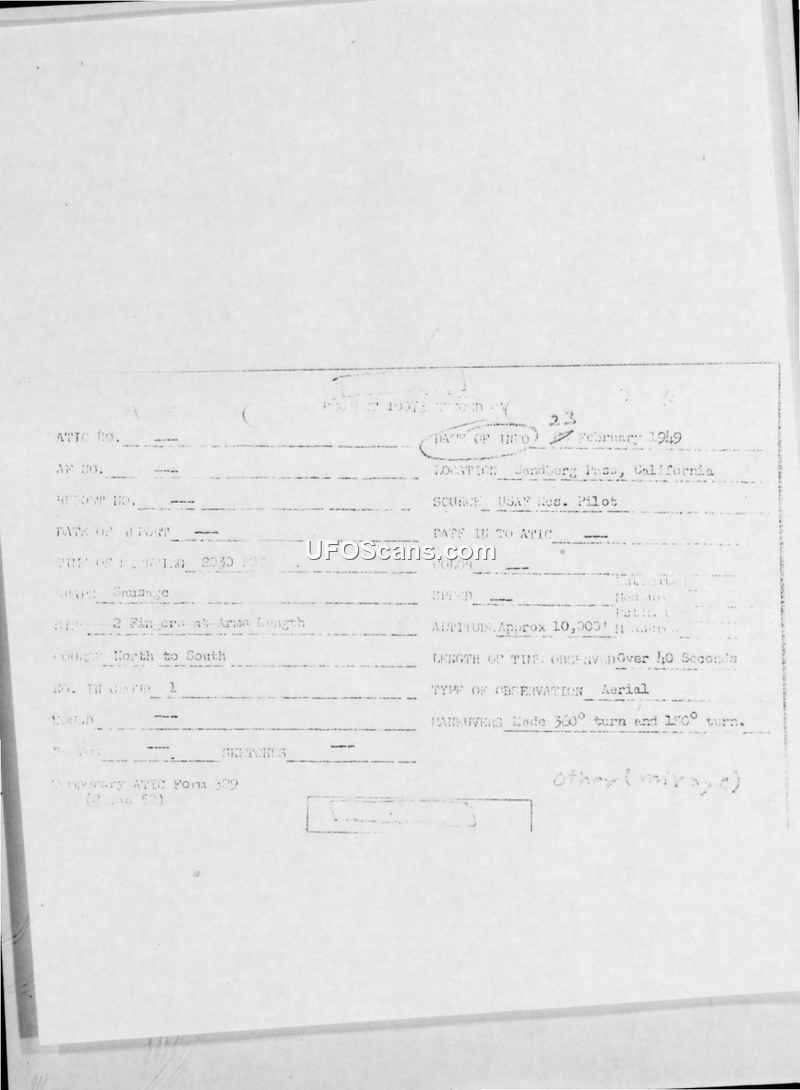 ATIC NO. --- DATE OF INFO 23 February 1949
AF NO. --- LOCATION Sandberg Pass, California
REPORT NO. --- SOURCE USAF Res. Pilot
DATE OF REPORT --- DATE IN TO ATIC ---
TIME OF SIGHTING 2030 COLOR ---
SHAPE Sausage SPEED ---
SIZE 2 Fingers at Arms Length ALTITUDE Approx 10,000'
COURSE North to South LENGTH OF TIME OBSERVED Over 40 Seconds
NO. IN GROUP 1 TYPE OF OBSERVATION Aerial
SOUND --- MANEUVERS Made 360° turn and turn.
PHOTOS ---. SKETCHES ---
Temporary ATIC Form 329
(2 Jan 52)
Other (mirage)
UFOScans.com